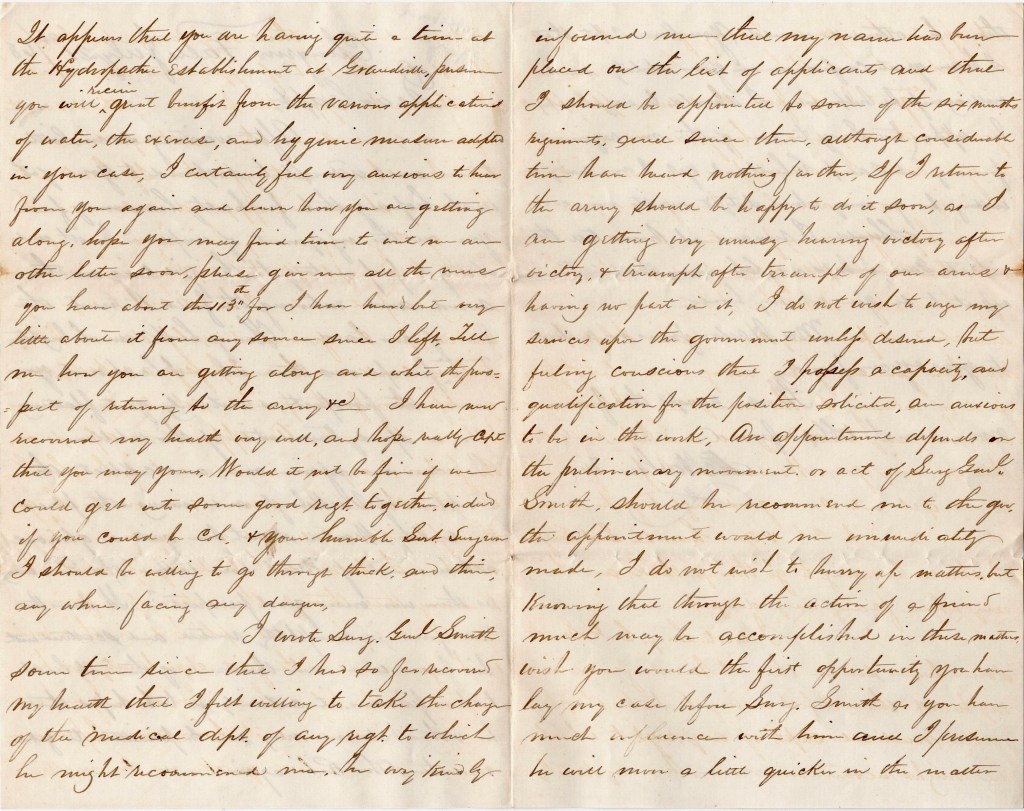 It appears that you are having quite a time at
the Hydropathic Establishment at Granville, presume
you will receive great benefit from the various applications
of water, the exercise, and hygienic measures adopted
in your case, I certainly feel very anxious to hear
from you again and learn how you are getting
along. hope you may find time to write me an
other letter soon. please give me all the news
you have about the 113th for I have heard but very
little about it from any source since I left. Tell
me how you are getting along and what the pros=
=pect of returning to the army &c I have now
recovered my health very well, and hope really Capt
that you may yours. Would it not be fine if we
could get into some good regt. together, indeed
if you could be Col. & your humble Servt. Surgeon
I should be willing to go through thick, and thin,
any where. facing any danger.
I wrote Surg. Genl. Smith
some time since that I had so far recovered
my health that I felt willing to take the charge
of the medical dept. of any regt. to which
he might recommend me. he very kindly
informed me that my name had been
placed on the list of applicants and that
I should be appointed to some of the six months
regiments, and since then, although considerable
time have heard nothing farther, If I return to
the army should be happy to do it soon, as I
am getting very uneasy hearing victory after
victory, & triumph after triumph of our arms &
having no part in it, I do not wish to urge my
services upon the government unless desired, but
feeling conscious that I possess a capacity, and
qualification for the position solicited, am anxious
to be in the work, An appointment depends on
the preliminary movement. or act of Surg Genl.
Smith. should he recommend me to the gov.
the appointment would me immediately
made, I do not wish to hurry up matters, but
knowing that through the action of a friend
much may be accomplished in these matters
wish you would the first opportunity you have
lay my case before Surg. Smith as you have
much influence with him and I presume
he will move a little quicker in the matter